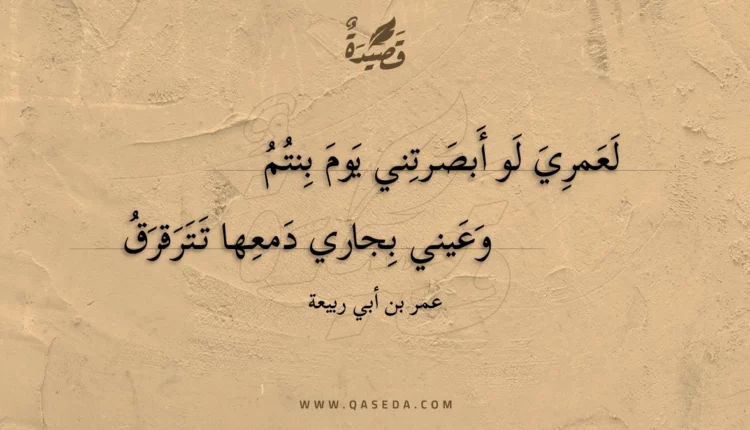 قَصِيدَةٌ
لَعَمرِيَ لَو أَبصَرتِني يَومَ بِنتُمُ
وَعَيني بِجاري دَمعِها تَتَرَقرَقُ
عمر بن أبي ربيعة
WWW.QASEDA.COM